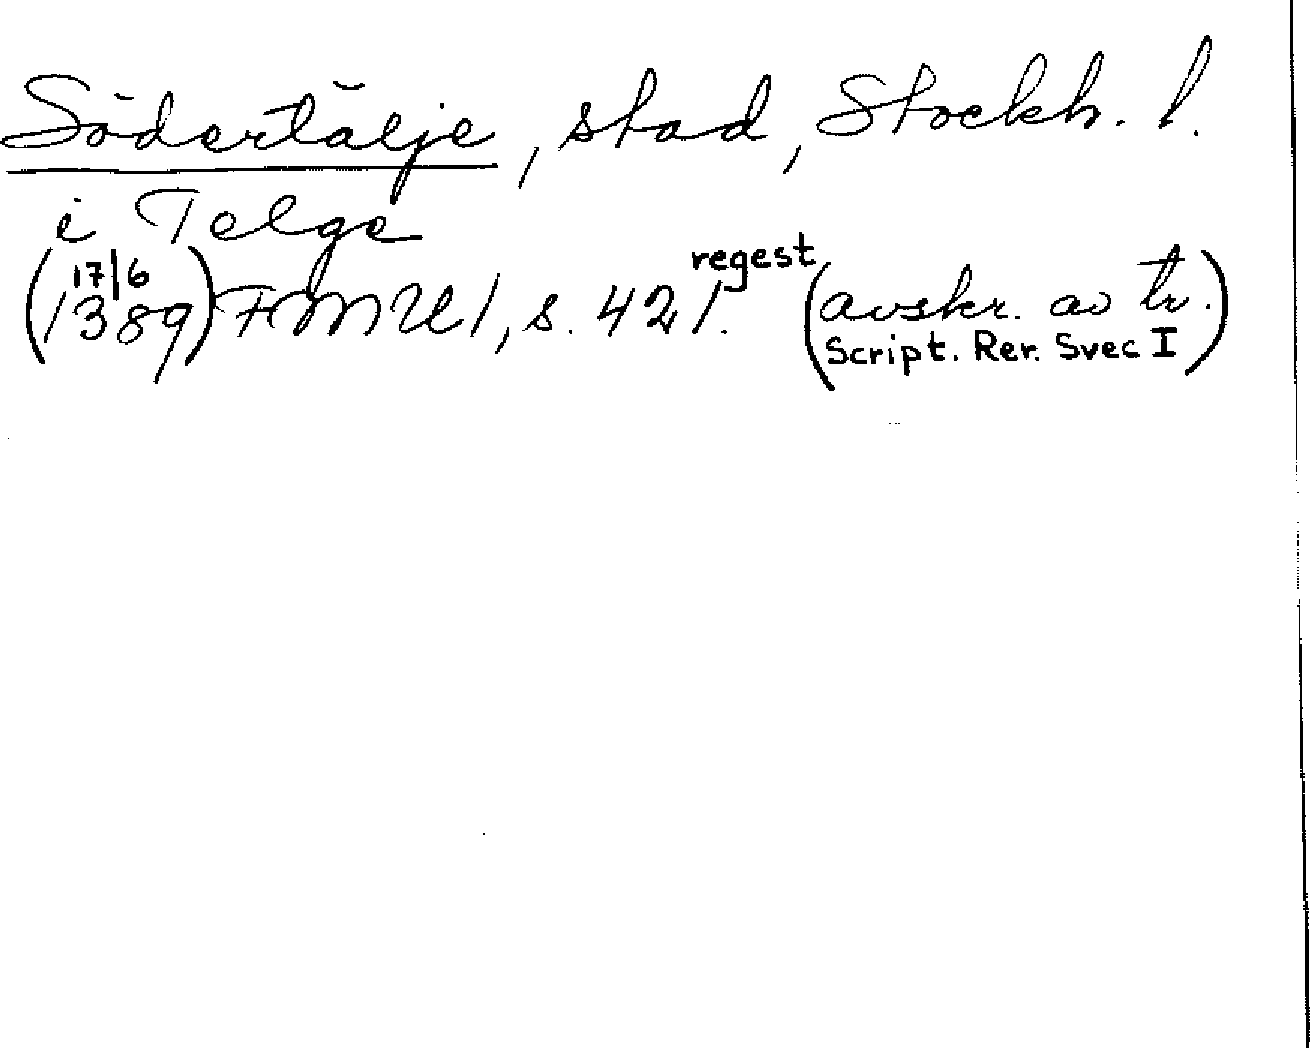 Södertälje, stad, Stockh. l.
i Telge
(17/6 1389) FMU 1, s. 421. regest (avskr. av tr.
Script. Rer. Svec I)